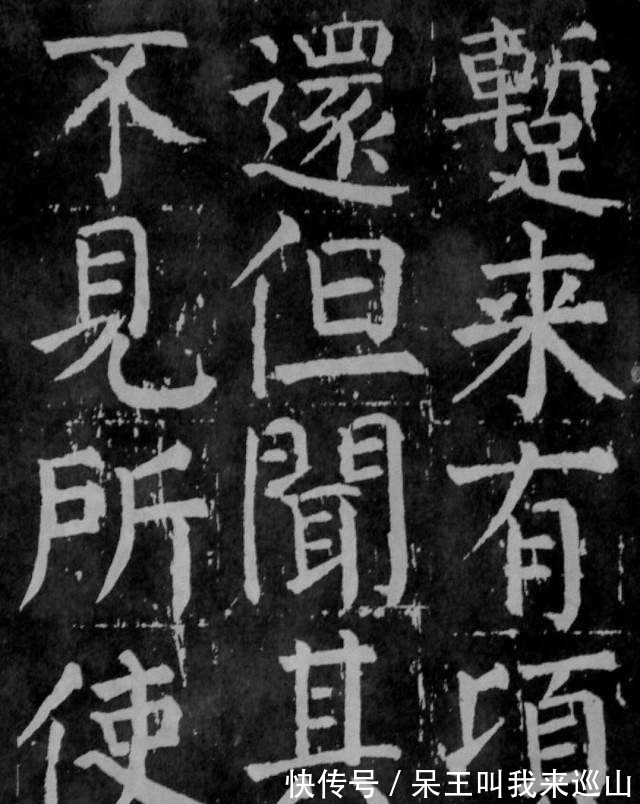 蹔来有頃
還但聞其
不見所使
快传号 / 呆王叫我来巡山